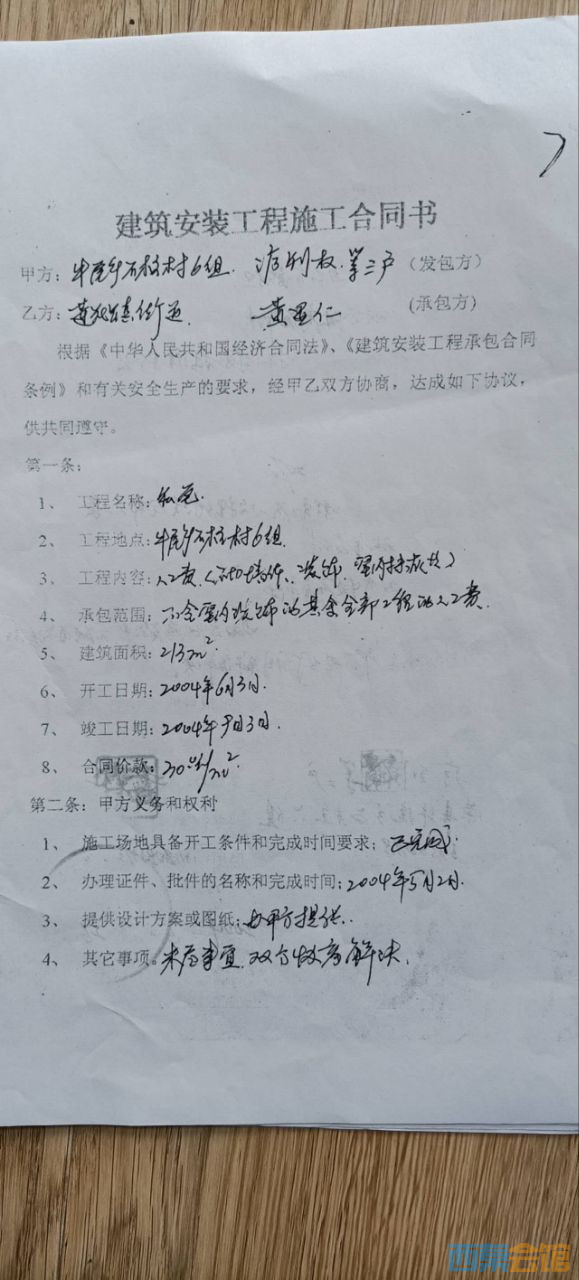 建筑安装工程施工合同书
甲方：牛尾乡石柱村6组. 权. 等三户（发包方）
乙方： 黄 仁 （承包方）
根据《中华人民共和国经济合同法》、《建筑安装工程承包合同
条例》和有关安全生产的要求，经甲乙双方协商，达成如下协议，
供共同遵守。
第一条：
1、 工程名称：私宅.
2、 工程地点：牛尾乡石柱村6组.
3、 工程内容：人工费
4、 承包范围：不含室内装饰的其余全部工程的人工费.
5、 建筑面积：213m².
6、 开工日期：2004年6月3日.
7、 竣工日期：2004年9月3日.
8、 合同价款：
第二条：甲方义务和权利
1、 施工场地具备开工条件和完成时间要求：已完成.
2、 办理证件、批件的名称和完成时间：2004年5月2日.
3、 提供设计方案或图纸：由甲方提供.
4、 其它事项。未尽事宜.双方协商解决.
西祠会馆